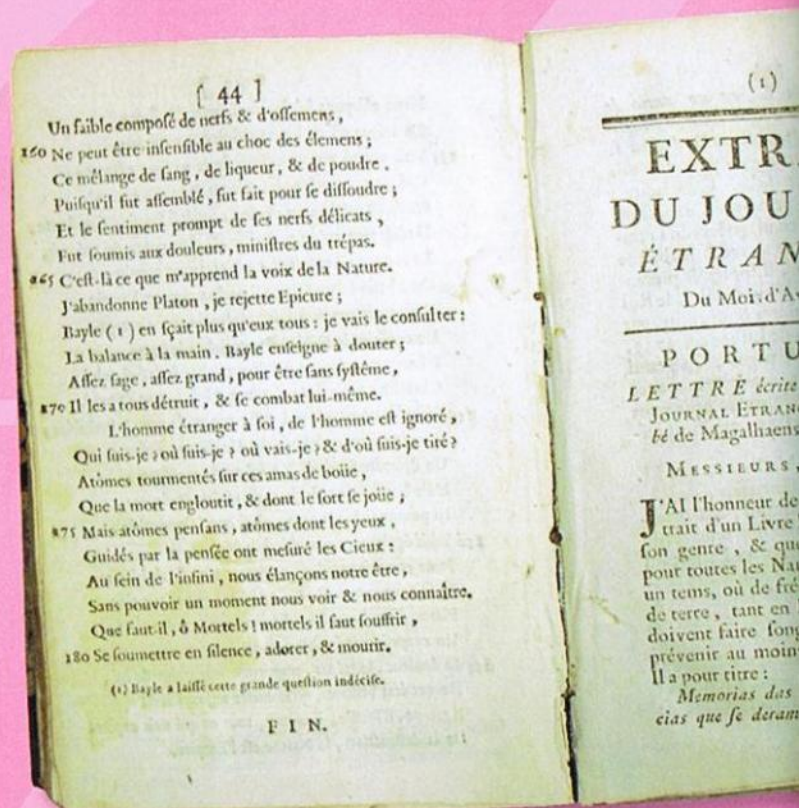 [ 44 ]
Un faible compoſé de nerfs & d'oſſemens,
160 Ne peut être inſenſible au choc des élemens ;
Ce mêlange de ſang, de liqueur, & de poudre.
Puiſqu'il fut aſſemblé, fut fait pour ſe diſſoudre ;
Et le ſentiment prompt de ſes nerfs délicats,
Fut ſoumis aux douleurs, miniſtres du trépas.
165 C'eſt-là ce que m'apprend la voix de la Nature.
J'abandonne Platon, je rejette Epicure ;
Bayle (1) en ſçait plus qu'eux tous : je vais le conſulter :
La balance à la main. Bayle enſeigne à douter ;
Aſſez ſage, aſſez grand, pour être ſans ſyſtême,
170 Il les a tous détruit, & ſe combat lui-même.
L'homme étranger à ſoi, de l'homme eſt ignoré,
Qui ſuis-je ? où ſuis-je ? où vais-je ? & d'où ſuis-je tiré ?
Atômes tourmentés ſur ces amas de boüe,
Que la mort engloutit, & dont le ſort ſe joüe ;
175 Mais atômes penſans, atômes dont les yeux,
Guidés par la penſée ont meſuré les Cieux :
Au ſein de l'infini, nous élançons notre être,
Sans pouvoir un moment nous voir & nous connaître.
Que faut-il, ô Mortels ! mortels il faut ſouffrir,
180 Se ſoumettre en ſilence, adorer, & mourir.
(1) Bayle a laiſſé cette grande queſtion indéciſe.
FIN.
(1)
EXTR
DU JOU
ÉTRAN
Du Mois d'A
PORTU
LETTRE écrite
JOURNAL ETRANG
bé de Magalhaens
MESSIEURS,
J'AI l'honneur de
trait d'un Livre
ſon genre, & que
pour toutes les Na
un tems, où de fré
de terre, tant en
doivent faire ſong
prévenir au moin
Il a pour titre :
Memorias das
cias que ſe deram